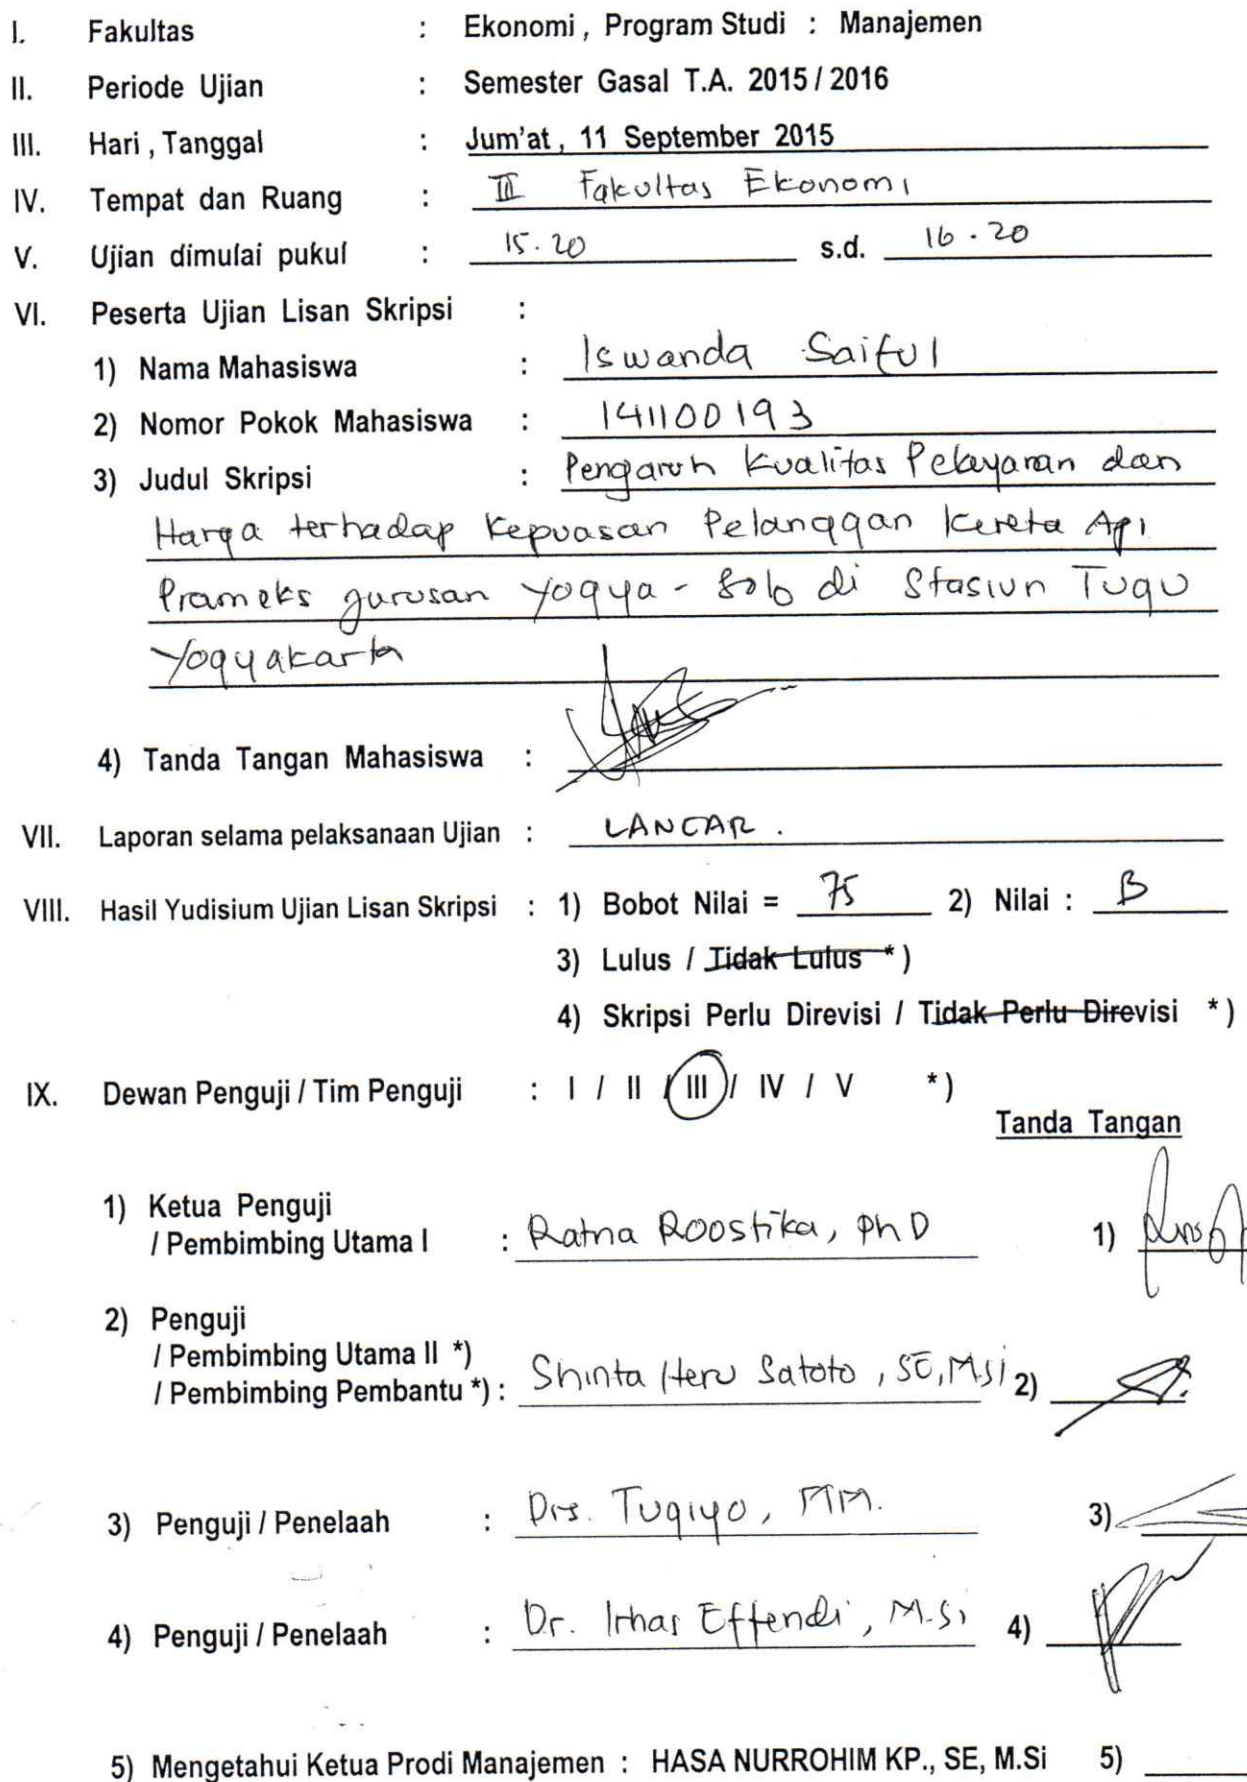 I. Fakultas : Ekonomi, Program Studi : Manajemen
II. Periode Ujian : Semester Gasal T.A. 2015 / 2016
III. Hari, Tanggal : Jum'at, 11 September 2015
IV. Tempat dan Ruang : III Fakultas Ekonomi
V. Ujian dimulai pukul : 15.20 s.d. 16.20
VI. Peserta Ujian Lisan Skripsi :
1) Nama Mahasiswa : Iswanda Saiful
2) Nomor Pokok Mahasiswa : 141100193
3) Judul Skripsi : Pengaruh Kualitas Pelayanan dan
Harga terhadap Kepuasan Pelanggan Kereta Api
Prameks jurusan Yogya - Solo di Stasiun Tugu
Yogyakarta
4) Tanda Tangan Mahasiswa :
VII. Laporan selama pelaksanaan Ujian : LANCAR.
VIII. Hasil Yudisium Ujian Lisan Skripsi : 1) Bobot Nilai = 75 2) Nilai : B
3) Lulus / Tidak Lulus *)
4) Skripsi Perlu Direvisi / Tidak Perlu Direvisi *)
IX. Dewan Penguji / Tim Penguji : I / II / III / IV / V *)
Tanda Tangan
1) Ketua Penguji
/ Pembimbing Utama I : Ratna Roostika, PhD 1)
2) Penguji
/ Pembimbing Utama II *)
/ Pembimbing Pembantu *) : Shinta Heru Satoto, SE, MSi 2)
3) Penguji / Penelaah : Drs. Tugiyo, MM. 3)
4) Penguji / Penelaah : Dr. Irhas Effendi, M.Si 4)
5) Mengetahui Ketua Prodi Manajemen : HASA NURROHIM KP., SE, M.Si 5)